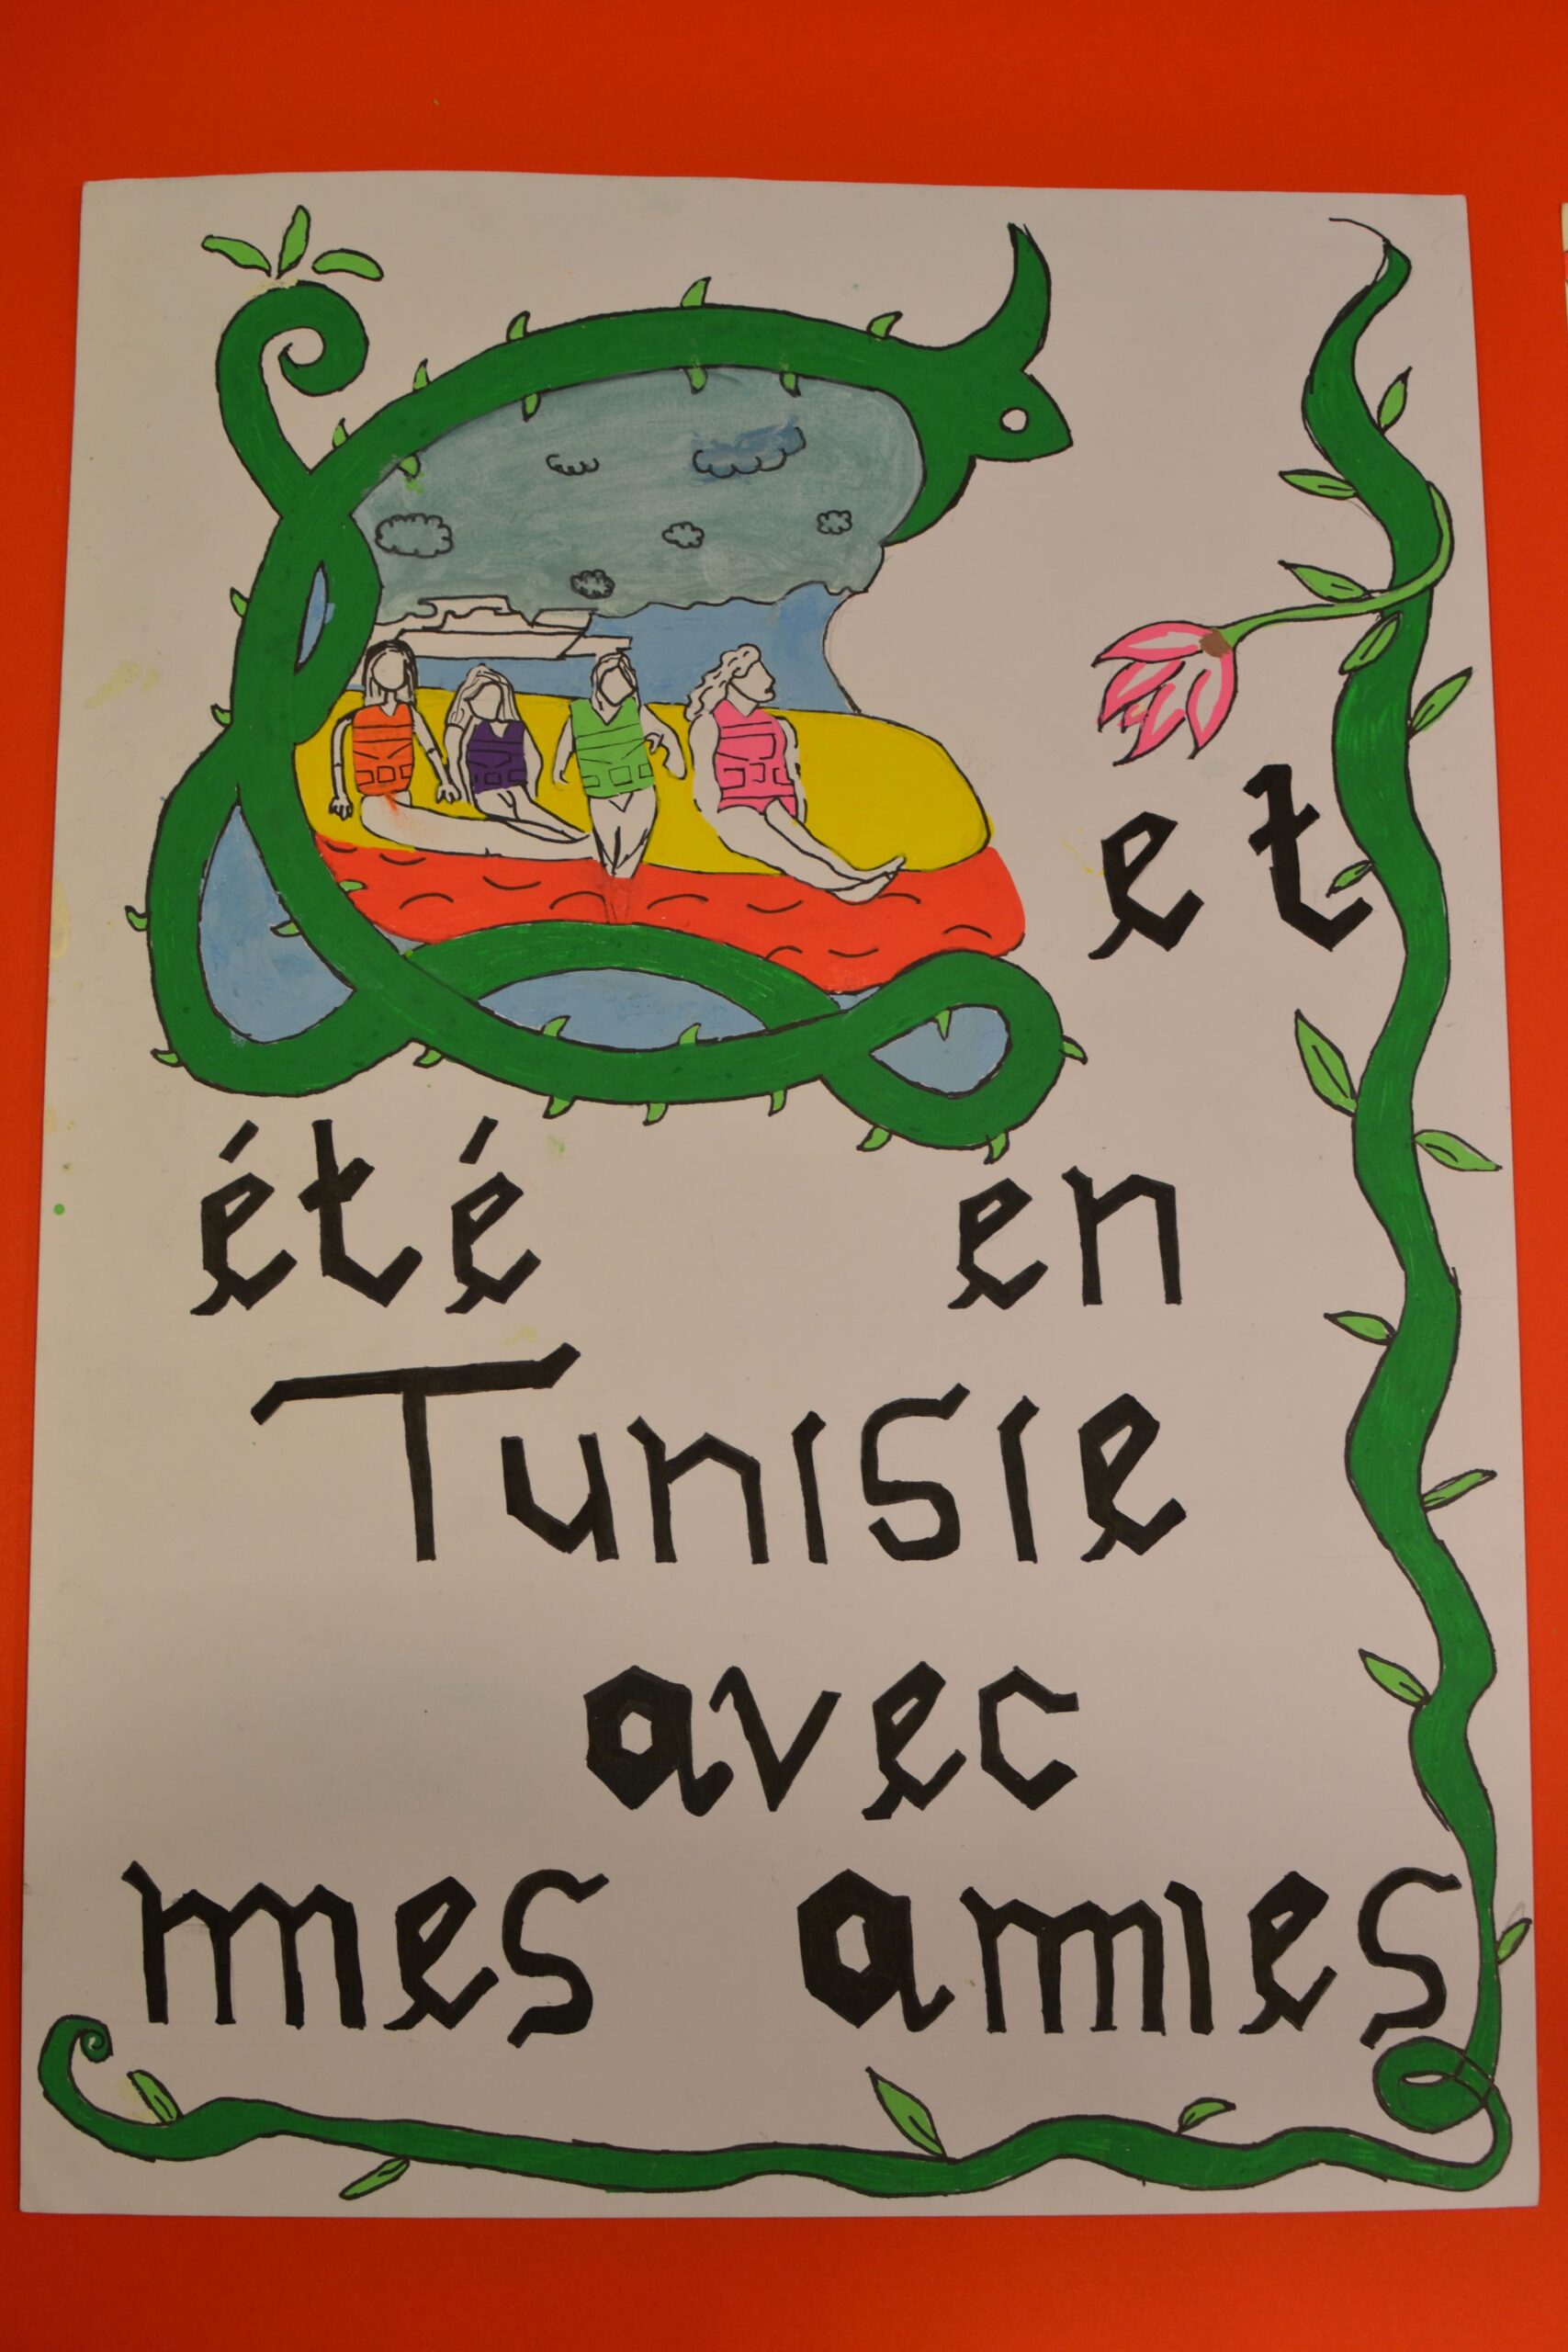 Cet
été en
Tunisie
avec
mes amies